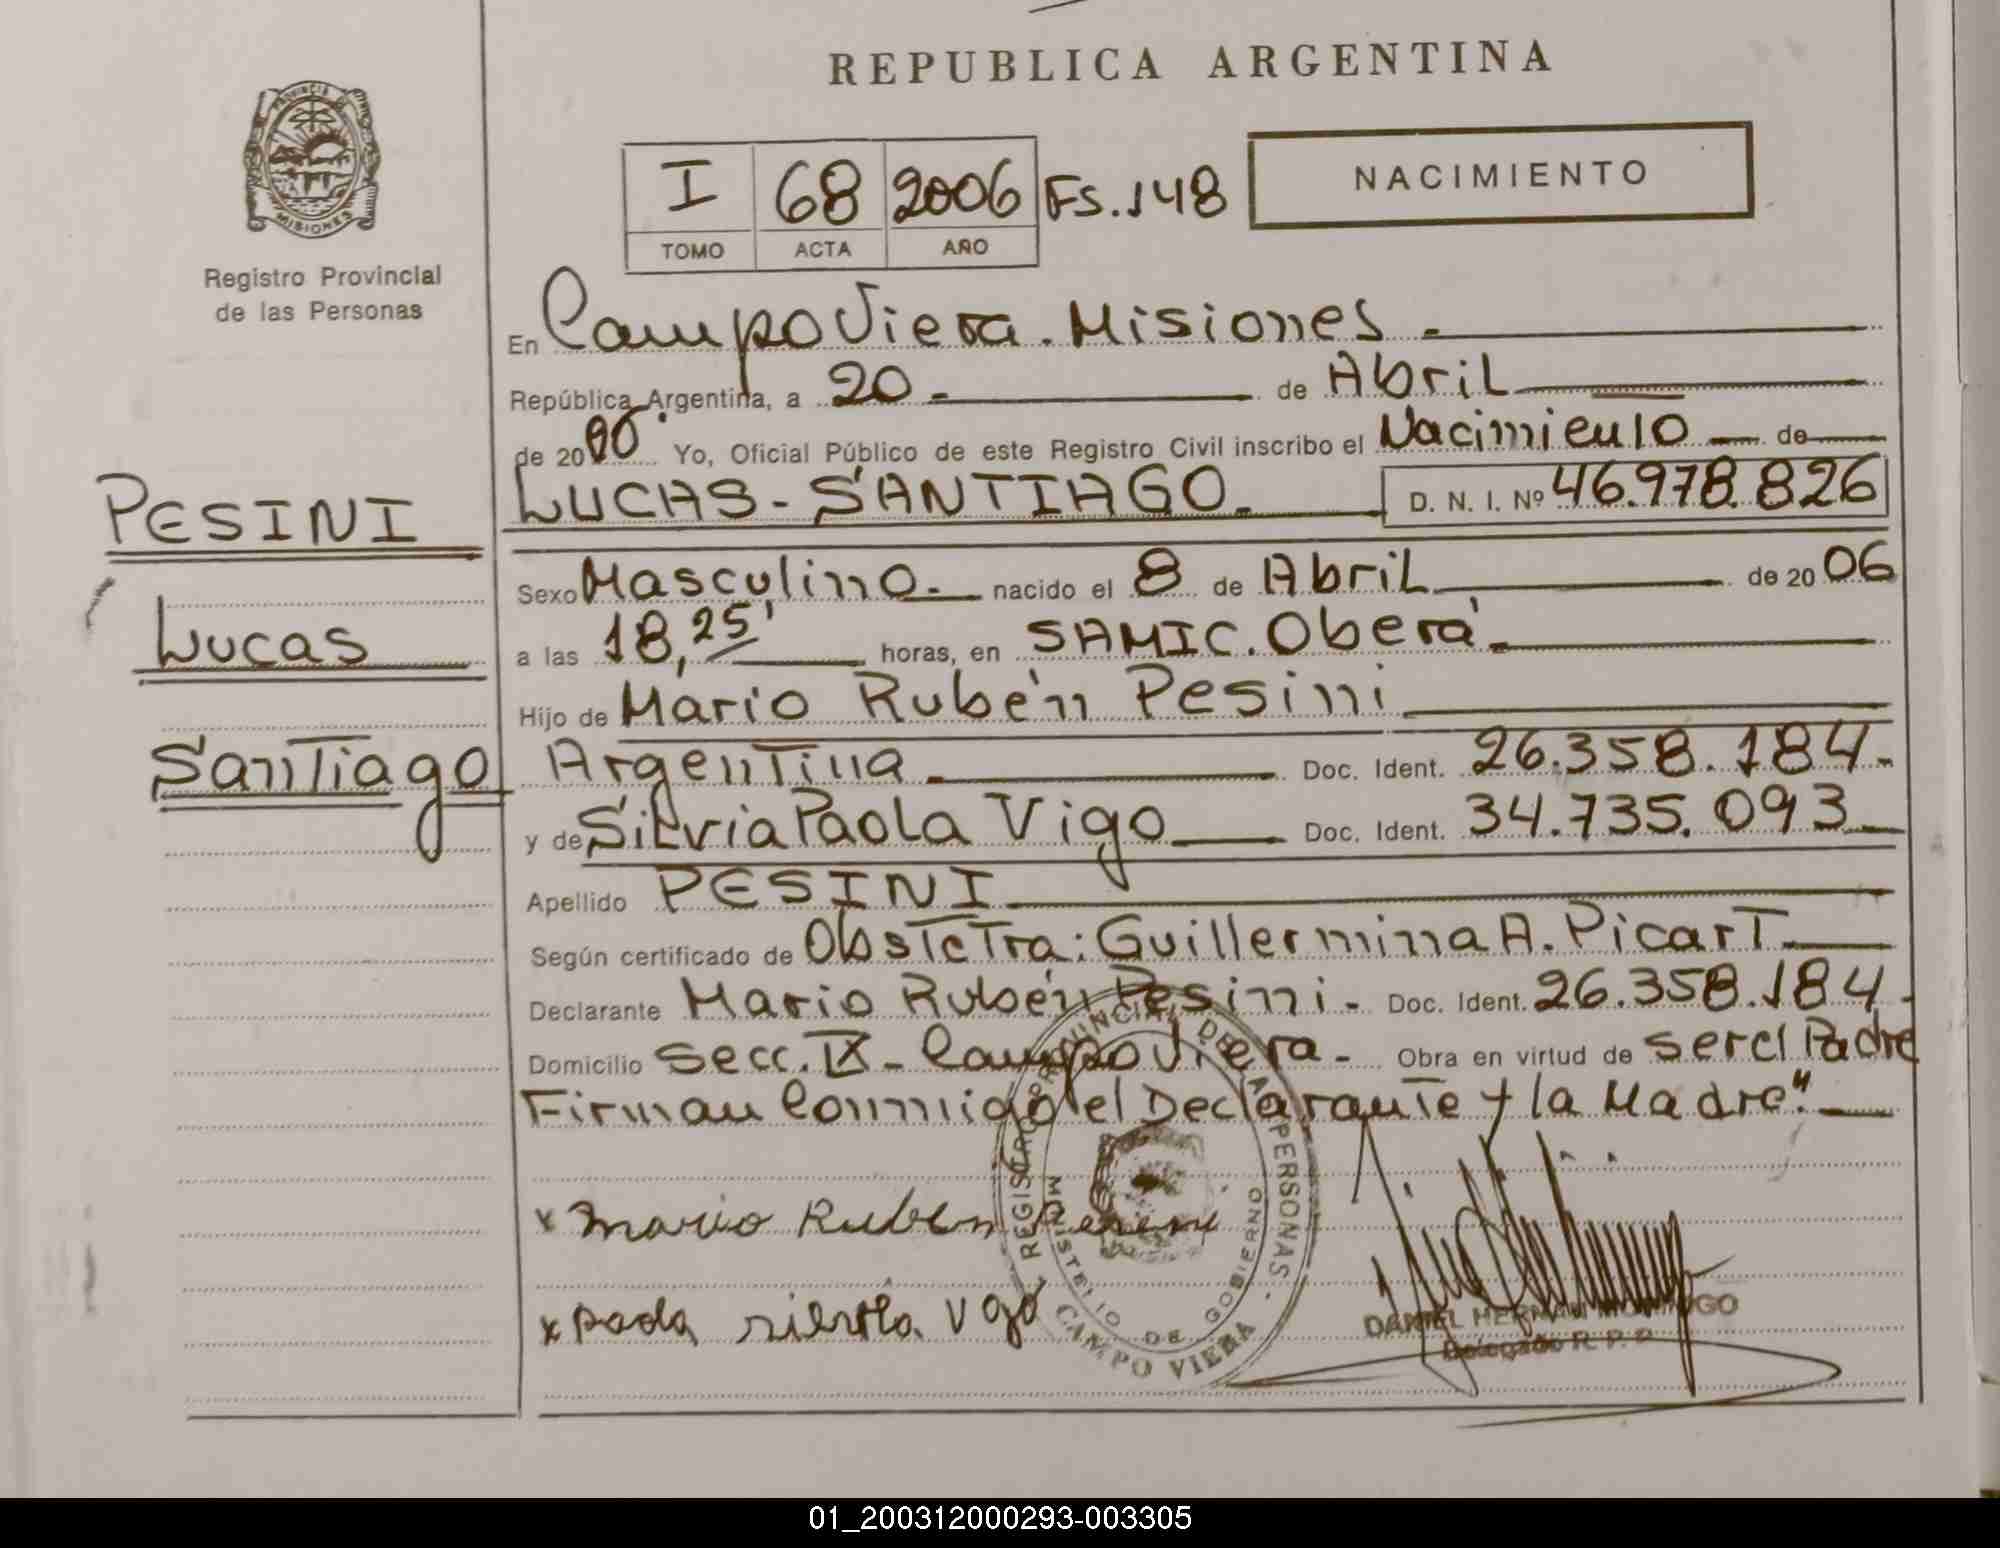 REPUBLICA ARGENTINA
PROVINCIA DE
MISIONES
Registro Provincial
de las Personas
I 68 2006 Fs. 148
TOMO ACTA AÑO
NACIMIENTO
En Campo Viera. Misiones -
República Argentina, a 20 - de Abril
de 20 06 Yo, Oficial Público de este Registro Civil inscribo el Nacimiento de
LUCAS - SANTIAGO. D. N. I. Nº 46.978.826
PESINI
Lucas
Santiago
Sexo Masculino. nacido el 8 de Abril de 20 06
a las 18,25' horas, en SAMIC. Oberá -
Hijo de Mario Rubén Pesini
Argentina - Doc. Ident. 26.358.184.-
y de Silvia Paola Vigo Doc. Ident. 34.735.093
Apellido PESINI
Según certificado de Obstetra: Guillermina A. Picart.
Declarante Mario Rubén Pesini - Doc. Ident. 26.358.184.
Domicilio Secc. IX - Campo Viera - Obra en virtud de ser el Padre
Firman Conmigo el Declarante y la Madre".
x Mario Ruben
x Paola Vigo
REGISTRO PROVINCIAL DE LAS PERSONAS -
MINISTERIO DE GOBIERNO
CAMPO VIERA
DANIEL HERNAN
Delegado R. P. P.
01_200312000293-003305